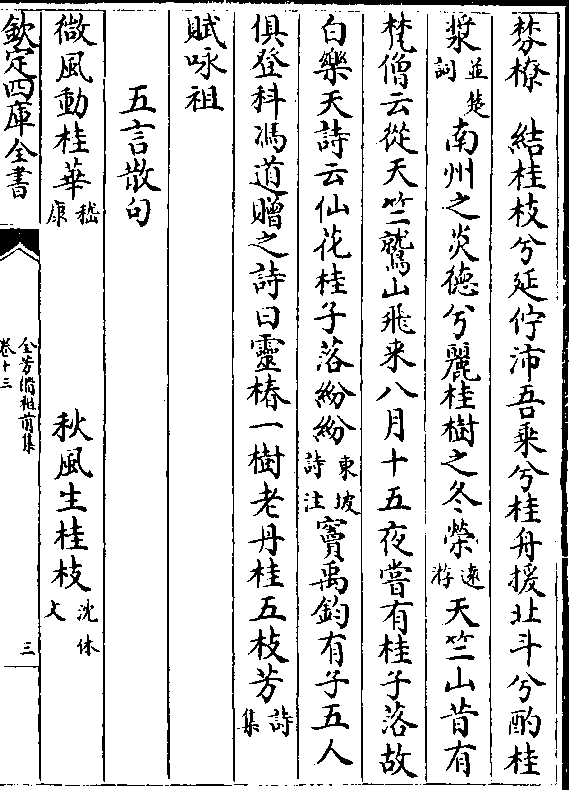 棼橑　結桂枝兮延佇沛吾乗兮桂舟援北斗兮酌桂
漿並楚詞南州之炎德兮麗桂樹之冬榮遠游天竺山昔有
梵僧云從天竺鷲山飛来八月十五夜嘗有桂子落故
白樂天詩云仙花桂子落紛紛東坡詩注竇禹鈞有子五人
俱登科馮道贈之詩曰靈椿一樹老丹桂五枝芳詩集
賦咏祖
五言散句
微風動桂華嵇康　秋風生桂枝沈休文
欽定四庫全書
全芳備祖前集
卷十三
三